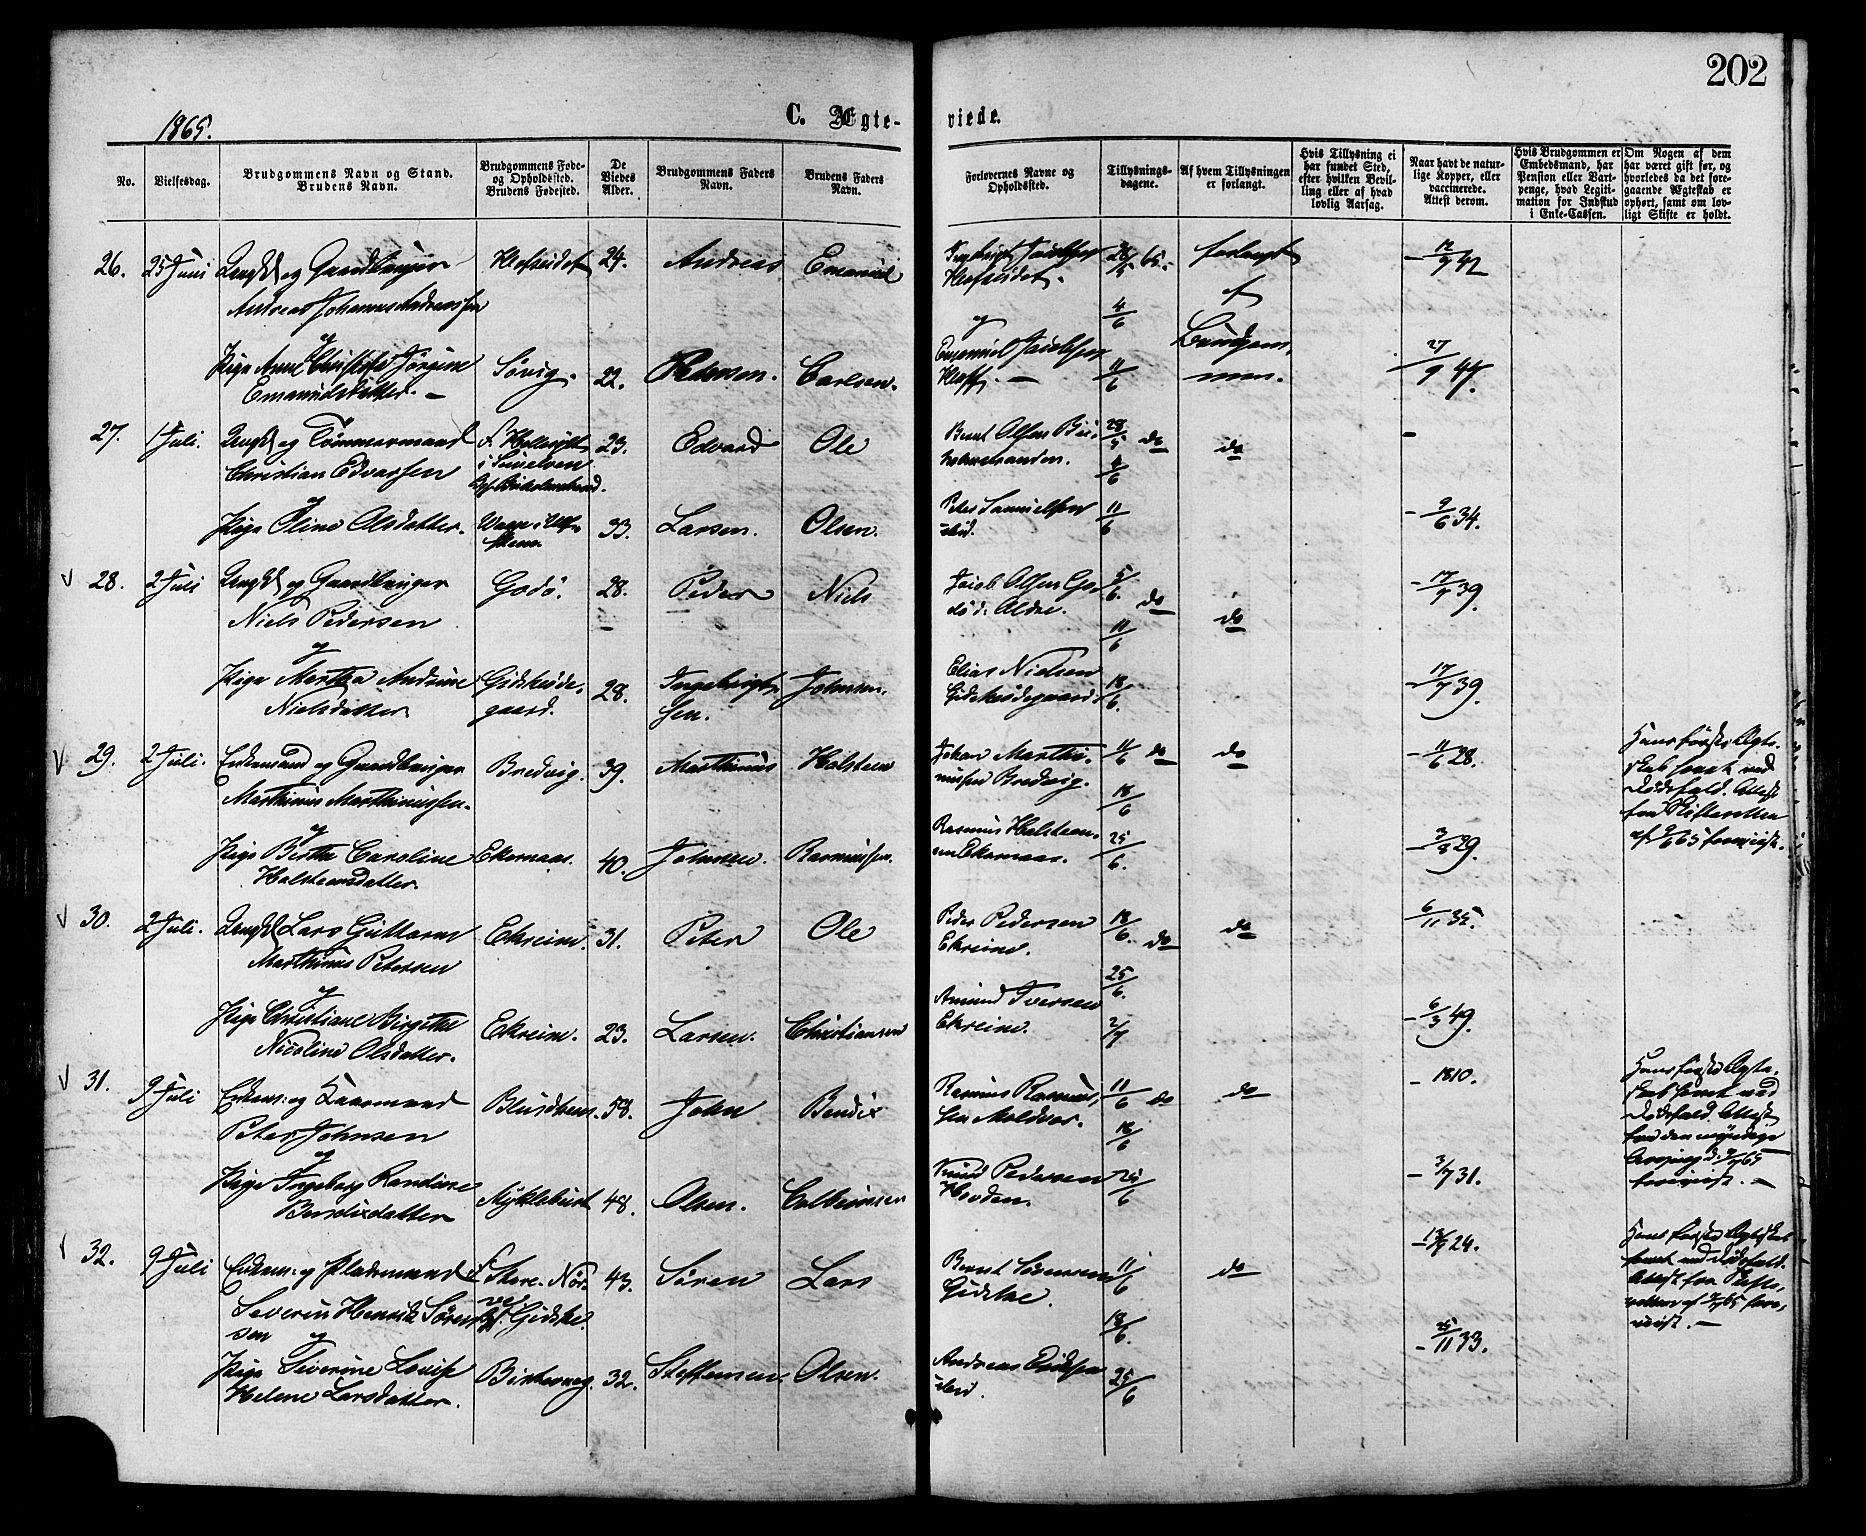 202
1865.
C. Ægte-
viede.
No.
Vielsesdag.
Brudgommens Navn og Stand.
Brudens Navn.
Brudgommens Føde-
og Opholdssted.
Brudens Fødested.
De
Viedes
Alder.
Brudgommens Faders
Navn.
Brudens Faders
Navn.
Forlovernes Navne og
Opholdssted.
Tillysnings-
dagene.
Af hvem Tillysningen
er forlangt.
Hvis Tillysning ei
har fundet Sted,
efter hvilken Bevil-
ling eller af hvad
lovlig Aarsag.
Naar havt de natur-
lige Kopper, eller
vaccinerede.
Attest derom.
Hvis Brudgommen er
Embedsmand, har
Pension eller Vart-
penge, hvad Legiti-
mation for Indskud
i Enke-Cassen.
Om Nogen af dem
har været gift før, og
hvorledes da det fore-
gaaende Ægteskab er
ophørt, samt om lov-
ligt Skifte er holdt.
26. 25 Juni Ungk. og Gaardbruger 24. Andreas Emanuel 28/5 65. forlangt 12/7 42
Andreas Johannes Andreassen
og 4/6 af
Pige Anne Jørgine Sørvig. 22. Pedersen. Carlsen. Emanuel Jacobsen 11/6 Brudgom- 27/9 47.
Emanuelsdatter. men.
27. 1 Juli. Ungk. og Tømmermand 23. Edvard Ole Bernt Olsen 28/5 do do
Christian Edvarsen 4/6
og
Pige Oline Olsdatter. 33. Larsen. Olsen. Peter Samuelsen 11/6 9/6 34.
ibid.
28. 2 Juli Ungk. og Gaardbruger Godø. 28. Peder Niels Jacob Olsen Go- 5/6. do do 17/7 39.
Niels Pedersen
og 11/6
Pige Martha Andrine Gidskeøde- 28. Ingebrigt- Johnsen. Elias Nielsen 18/6. 17/7 39.
Nielsdatter gaard. sen. Gidskeødegaard.
29. 2 Juli. Enkemand og Gaardbruger Bredvig. 39. Marthinus Halsteen Johan Marthi- 11/6 do do 11/6 28. Hans første Ægte-
Marthinus Marthinussen. nussen Bredvig. skab hævet ved
og 18/6 Dødsfald. Attest
Pige Berthe Caroline Ekornaas. 40. Johnsen. Rasmussen. Rasmus Halsteen- 25/6. 3/8 29. fra Skifteretten
Halsteensdatter. sen Ekornaas. af 9/6 65 foreviist.
30. 2 Juli. Ungk. Lars Guttorm Ekreim. 31. Peter Ole Peder Pedersen 18/6. do do 6/11 35.
Marthinus Petersen Ekreim.
og 25/6.
Pige Christiane Birgitte Ekreim. 23. Larsen. Christiansen Amund Iversen 2/7 6/3 49.
Nicoline Olsdatter. Ekreim.
31. 9 Juli Enkem: og 58. John Bendix Rasmus Rasmus- 11/6 do do 1810. Hans første Ægte-
Peter Johnsen sen Moldvær. 18/6 skab hævet ved
og Dødsfald. Attest
Pige Ingeborg Randine Myklebust 48. Olsen. Knud Pedersen 25/6 3/7 31. fra den myndige
Bendixdatter Hovden. foreviist.
32. 9 Juli Enkem: og 43. Søren Lars Bernt Sørensen 11/6 do 24. Hans første Ægteskab
Severin Henrik Søren- Gidske. Gidske. hævet ved Dødsfald.
sen og 18/6. Attest fra Skifte-
Pige Severine Lovise 32. Steffensen Olsen. Andreas 25/6 25/11 33. retten af 65 fore-
Helene Larsdatter. ibid. viist.